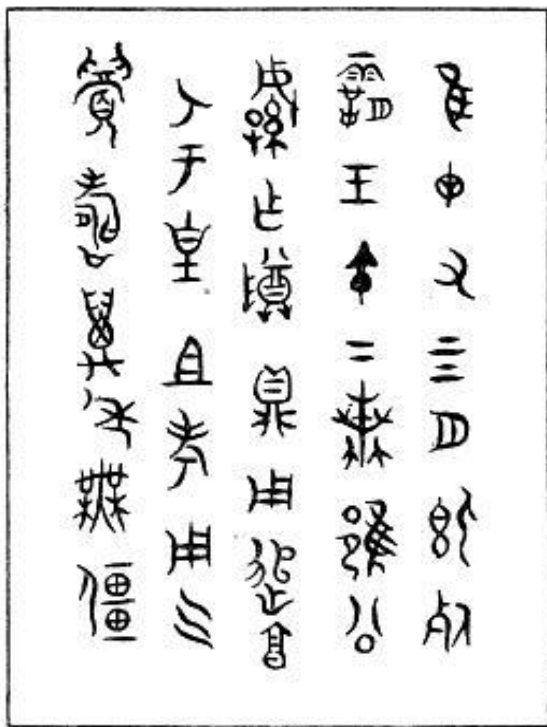 隹十又四月既死
霸壬午下蠚雝公
諴乍尊鼎用追享
丂于皇且考用气
眉壽萬年無疆